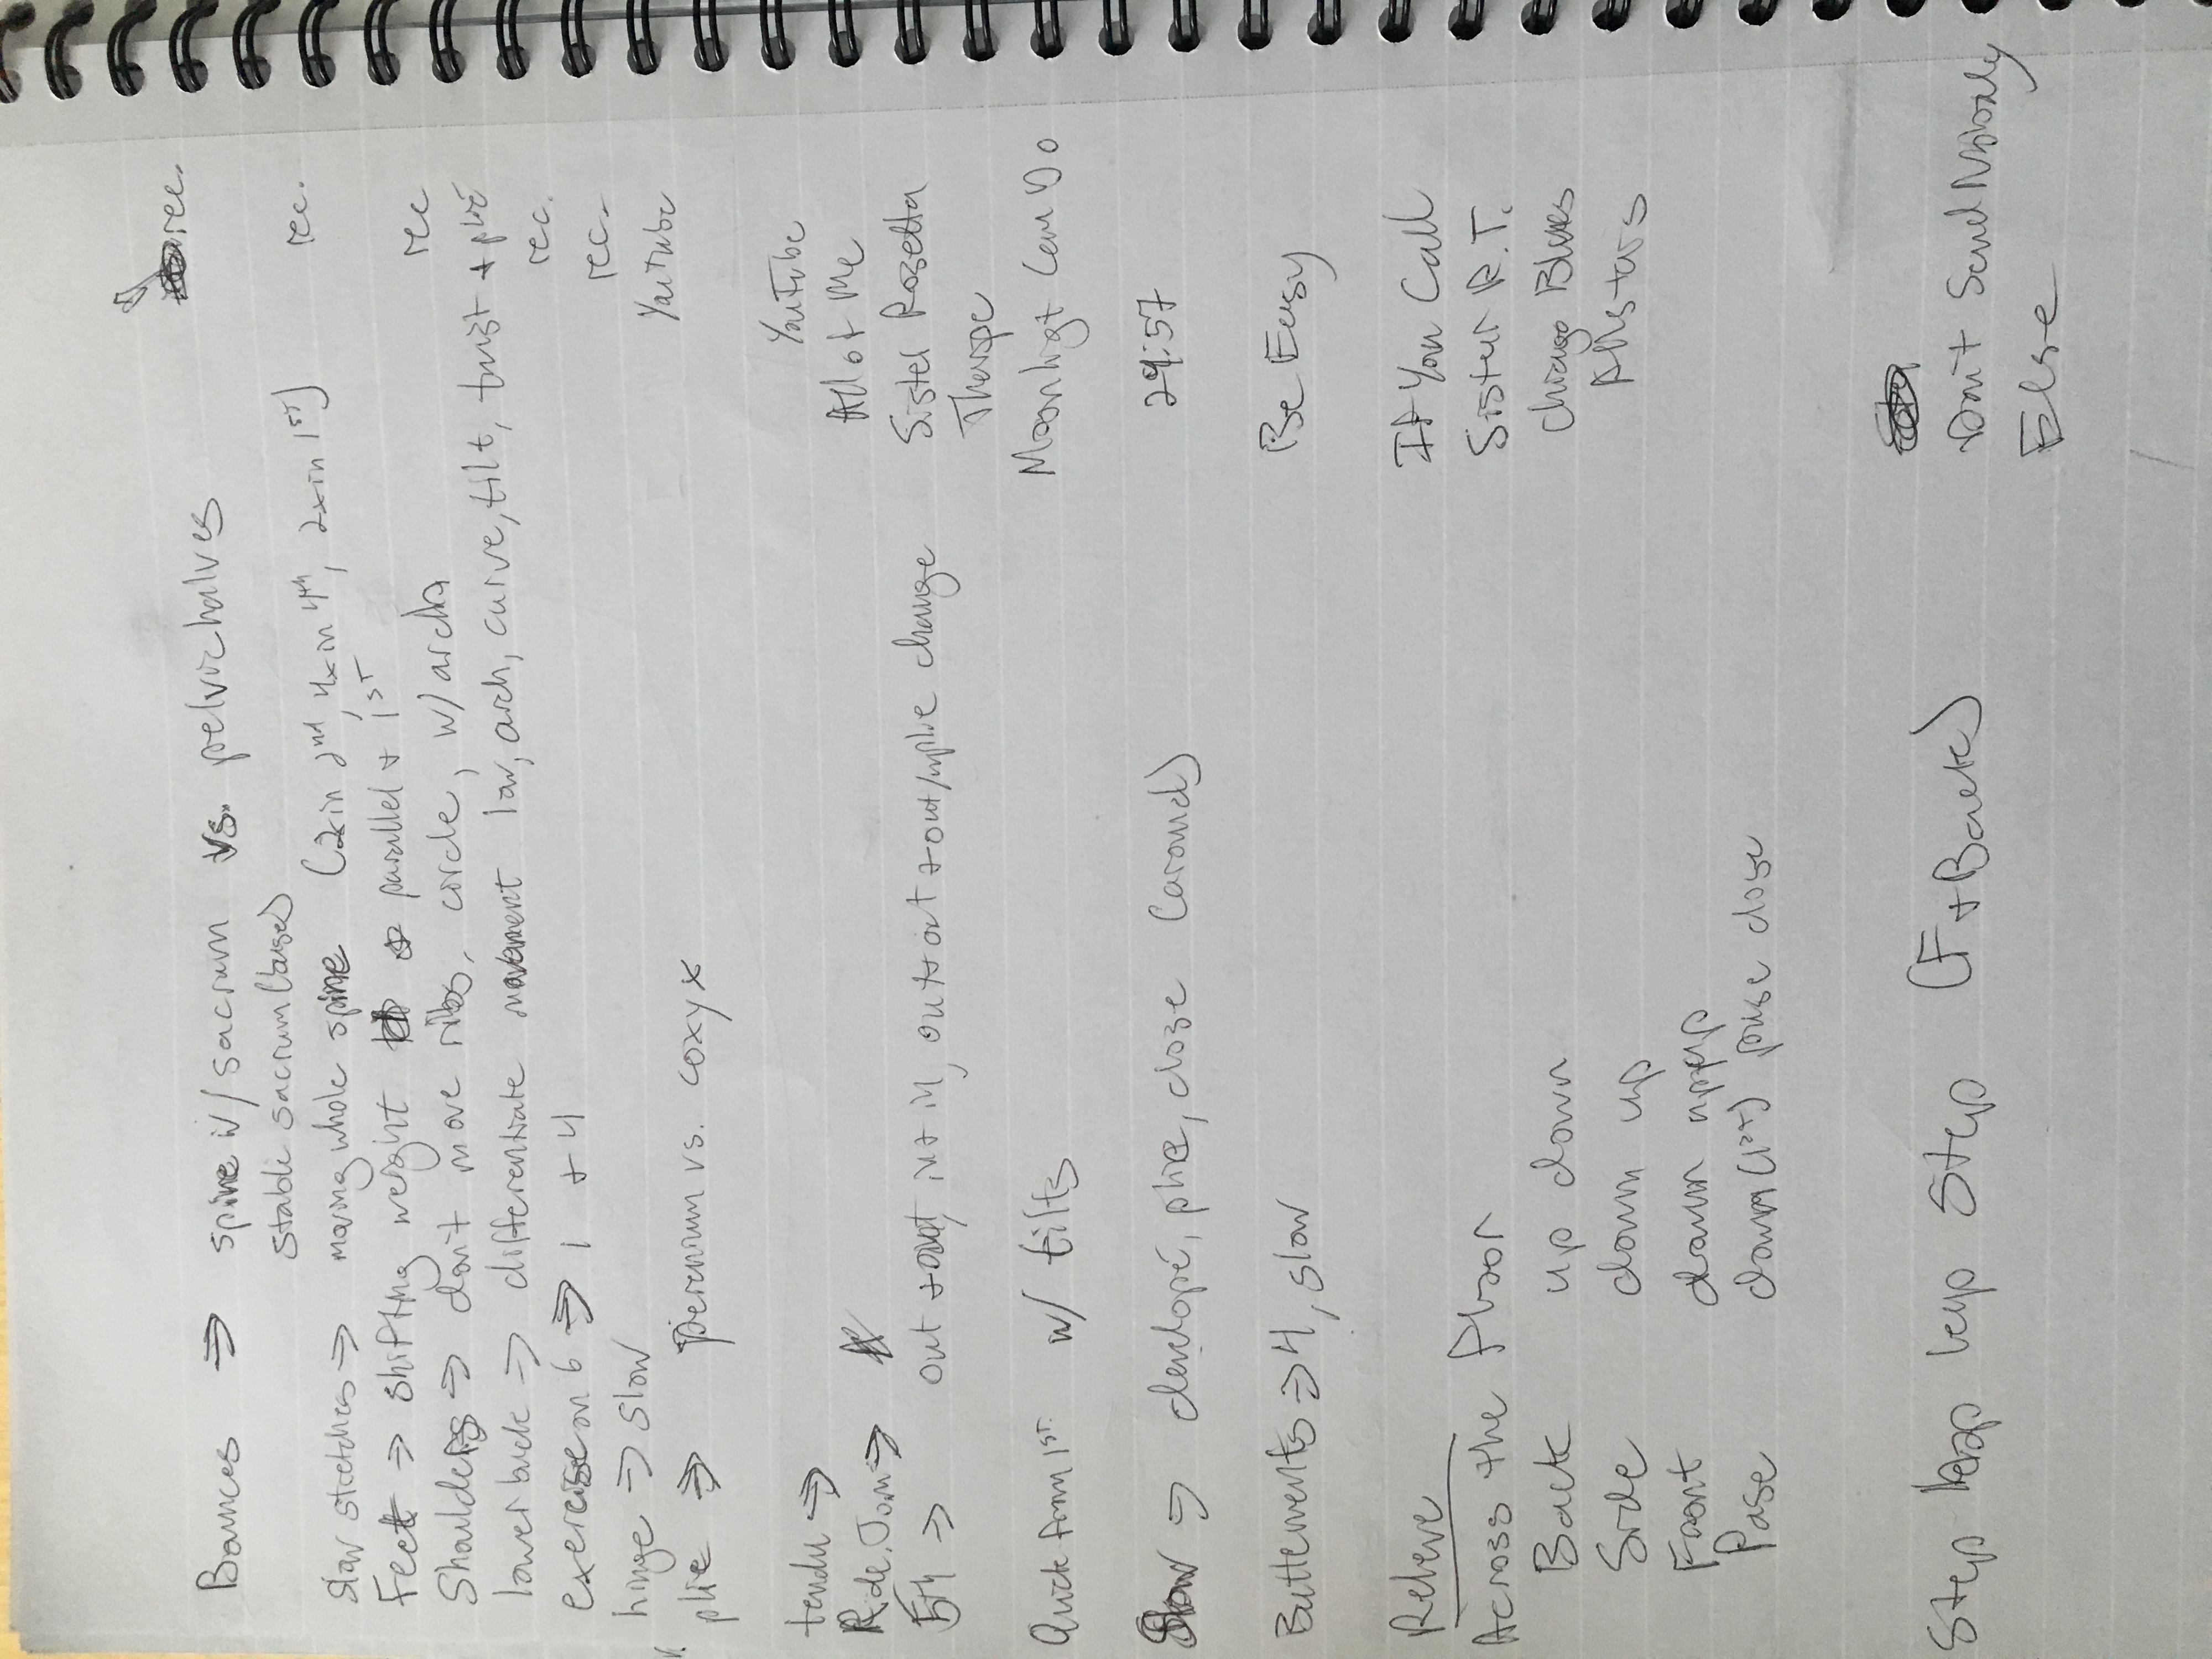 Bounces ⇒ spine w/ sacrum vs. pelvic halves rec.
stable sacrum (based)
slow stretches ⇒ moving whole spine (2x in 2nd, 4x in 4th, 2x in 1st) rec.
Feet ⇒ shifting weight parallel + 1st
Shoulders ⇒ don't move ribs, circle, w/ arch rec
lower back ⇒ differentiate movement low, arch, curve, tilt, twist + plié
exercise on 6 ⇒ 1 + 4 rec.
hinge ⇒ slow rec.
plie ⇒ perenium vs. coxyx YouTube
tendu ⇒ YouTube
R. de. Jam ⇒ All of Me
5th ⇒ out + out, in + in, out + out + out/w plie change Sister Rosetta
Tharpe
Quick from 1st w/ tilts Moonligt Can Do
Slow ⇒ developé, plie, close (around) 29:57
Buttements ⇒ 4, slow Be Easy
Releve
Across the floor If You Call
Back up down Sister R.T.
Side down up Chicago Blues
Front down up up Allstars
Pase down (1st) pase close
Step leap step (F + Back) Don't Send Nobody
Else